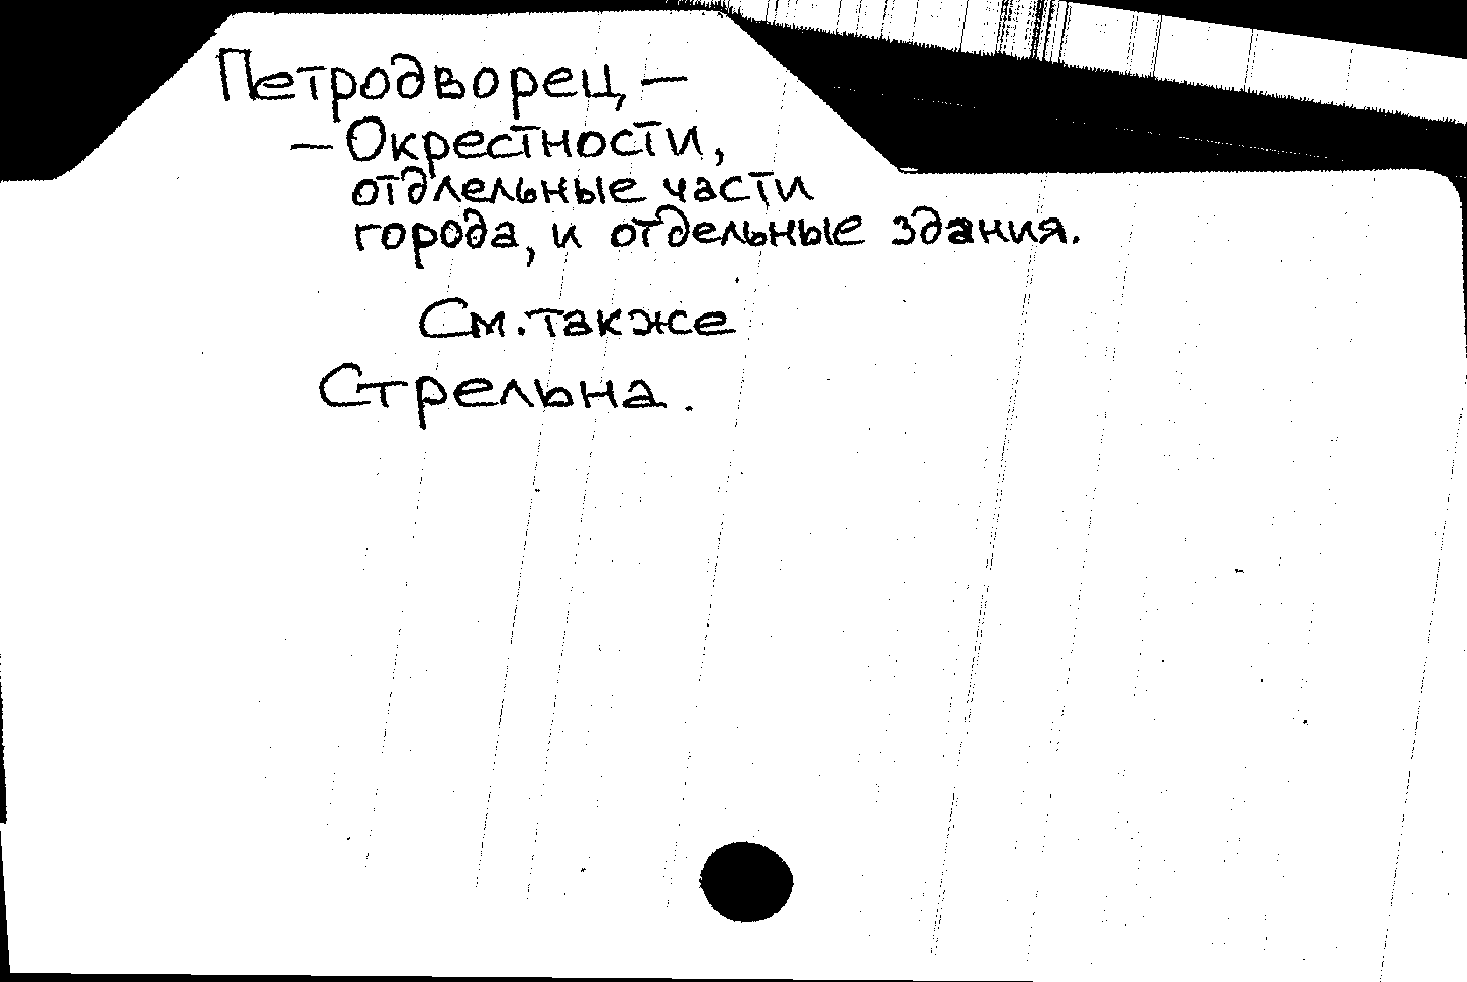 Петродворец, —
— Окрестности,
отдлельные части
города, и отдельные здания.
См. также
Стрельна.